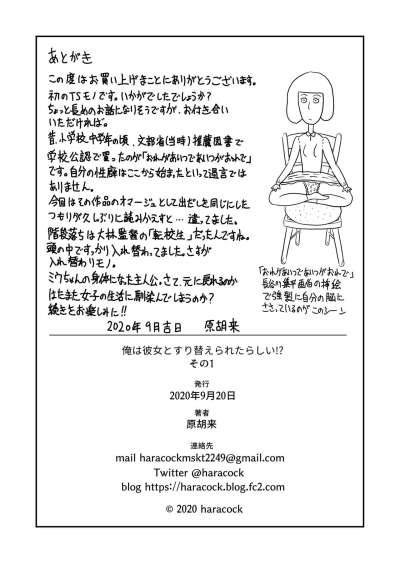 あとがき
この度はお買い上げまことにありがとうございます。
初のTSモノです。いかがでしたでしょうか?
ちょっと長めのお話になりそうですが、お付き合い
いただければ。
昔、小学校中学年の頃、文部省(当時)推薦図書で
学校公認で買ったのが「おれがあいつであいつがおれで」
です。自分の性癖はここから始まったといって過言では
ありません。
今回はその作品のオマージュとして出だしを同じにした
つもりが久しぶりに読みかえすと…違ってました。
階段落ちは大林監督の「転校生」だったんですね。
頭の中ですっかり入れ替わってました。さすが
入れ替わりモノ。
ミウちゃんの身体になった主人公。さて、元に戻れるのか
はたまた女子の生活に馴染んでしまうのか?
続きをお楽しみに!!
2020年9月吉日 原胡来
「おれがあいつであいつがおれで」
長谷川集平画伯の挿絵
で強烈に自分の脳に
ささっているのがこのシーン
俺は彼女とすり替えられたらしい!?
その1
発行
2020年9月20日
著者
原胡来
連絡先
mail haracockmskt2249@gmail.com
Twitter @haracock
blog https://haracock.blog.fc2.com
© 2020 haracock